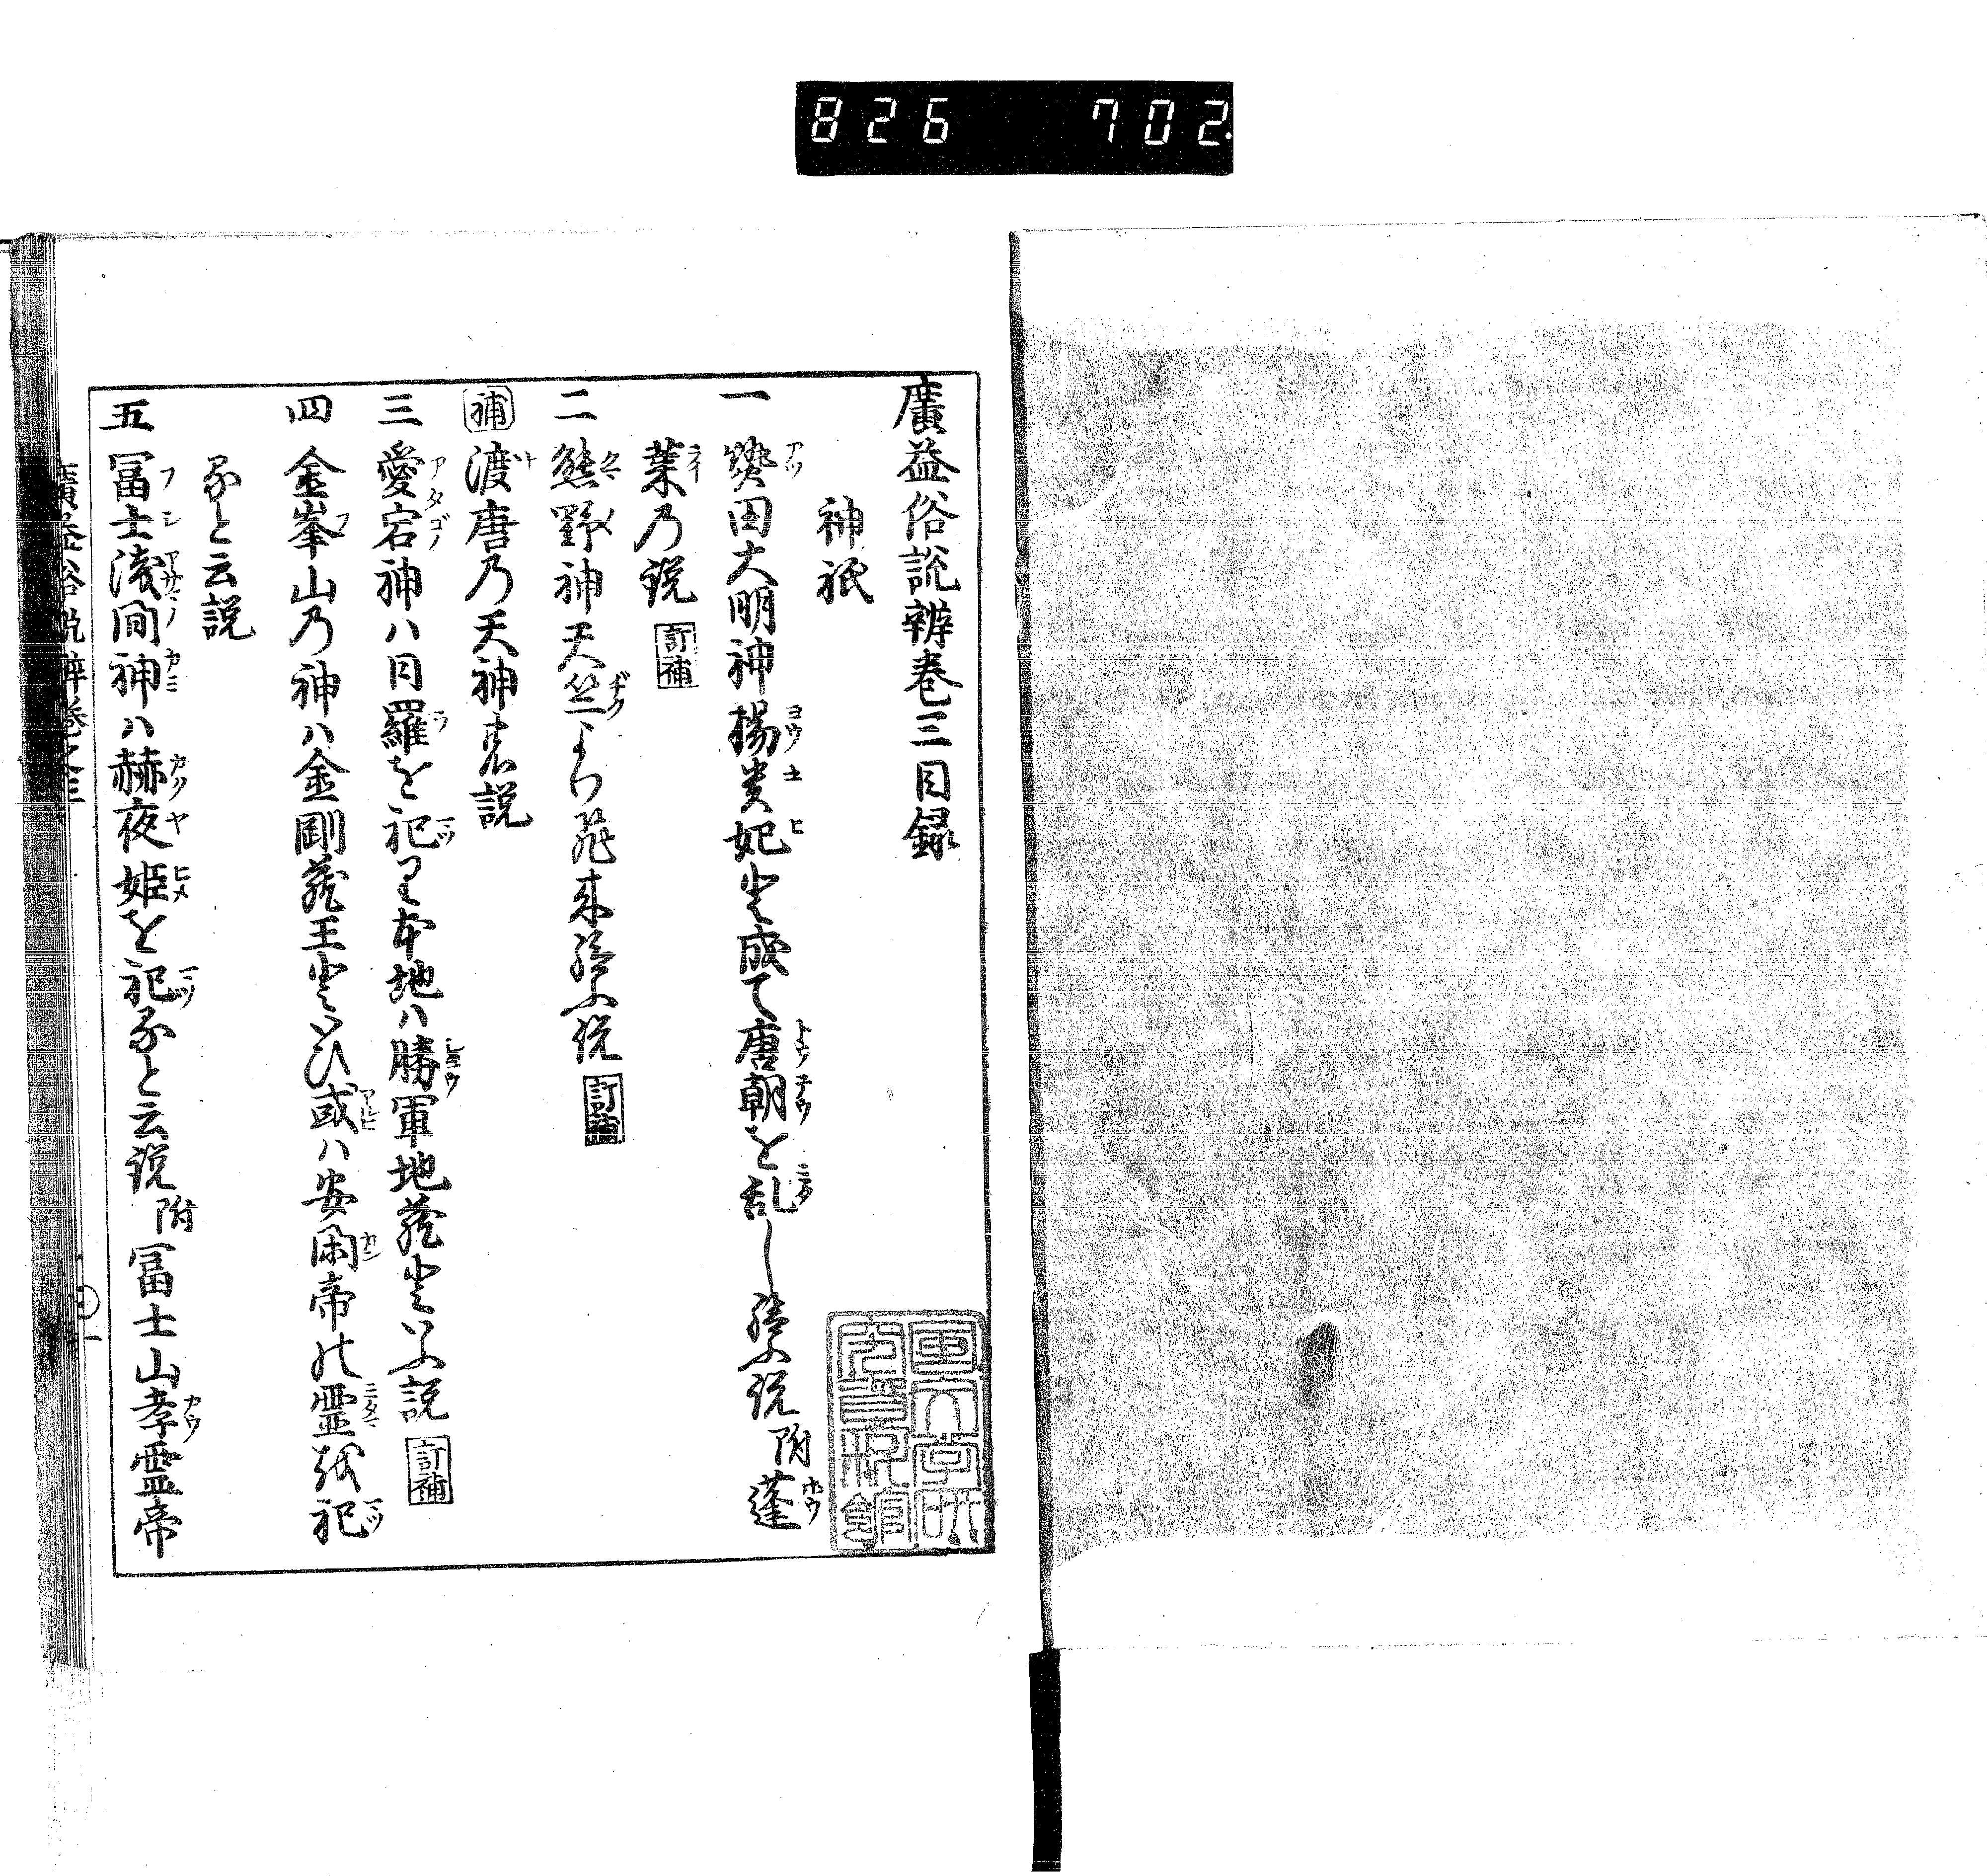 826 702
廣益俗説辨巻三目録
神祇
一 熱田大明神楊貴妃と成て唐朝を乱し給ふ説 附 蓬
莱乃説 訂補
二 熊野神天竺より飛来給ふ説 訂補
補 渡唐乃天神の説
三 愛宕神ハ日羅を祀り本地ハ勝軍地蔵といふ説 訂補
四 金峯山乃神ハ金剛蔵王といひ或ハ安閑帝の霊を祀
ると云説
五 冨士浅間神ハ赫夜姫を祀ると云説 附 冨士山孝霊帝
廣益俗説辨巻之三 一